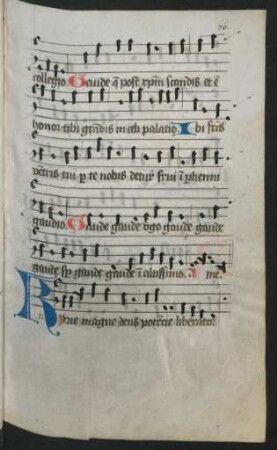 56.
collegio Gaude q post xpm scandis et e
honor tibi grandis in celi palatio. Ibi fruct
ventris tui p te nobis detur frui i phenni
gaudio. Gaude gaude virgo gaude gaude
gaude sp gaude gaude i altissimo. me.
Kyrie magne deus potencie liberator